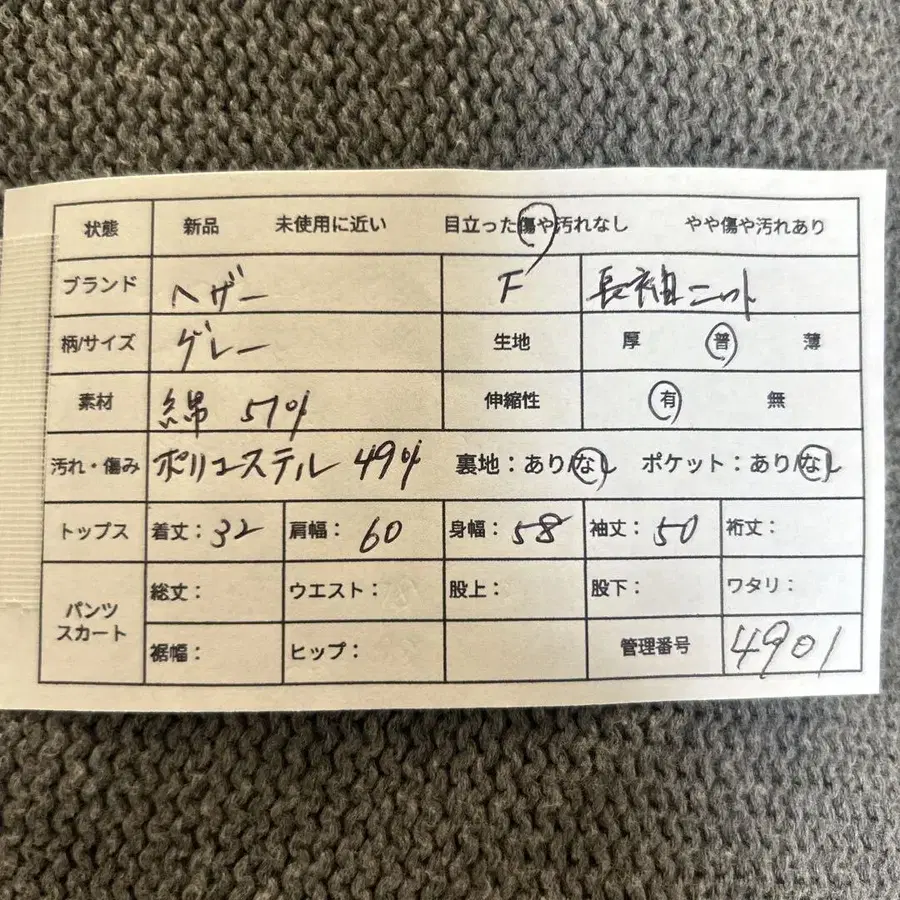 状態 新品 未使用に近い 目立った傷や汚れなし やや傷や汚れあり
ブランド ヘザー F 長袖ニット
柄/サイズ グレー 生地 厚 普 薄
素材 綿 51% 伸縮性 有 無
汚れ・傷み ポリエステル 49% 裏地：あり/なし ポケット：あり/なし
トップス 着丈：32 肩幅：60 身幅：58 袖丈：50 裄丈：
パンツ スカート 総丈： ウエスト： 股上： 股下： ワタリ：
裾幅： ヒップ： 管理番号 4901